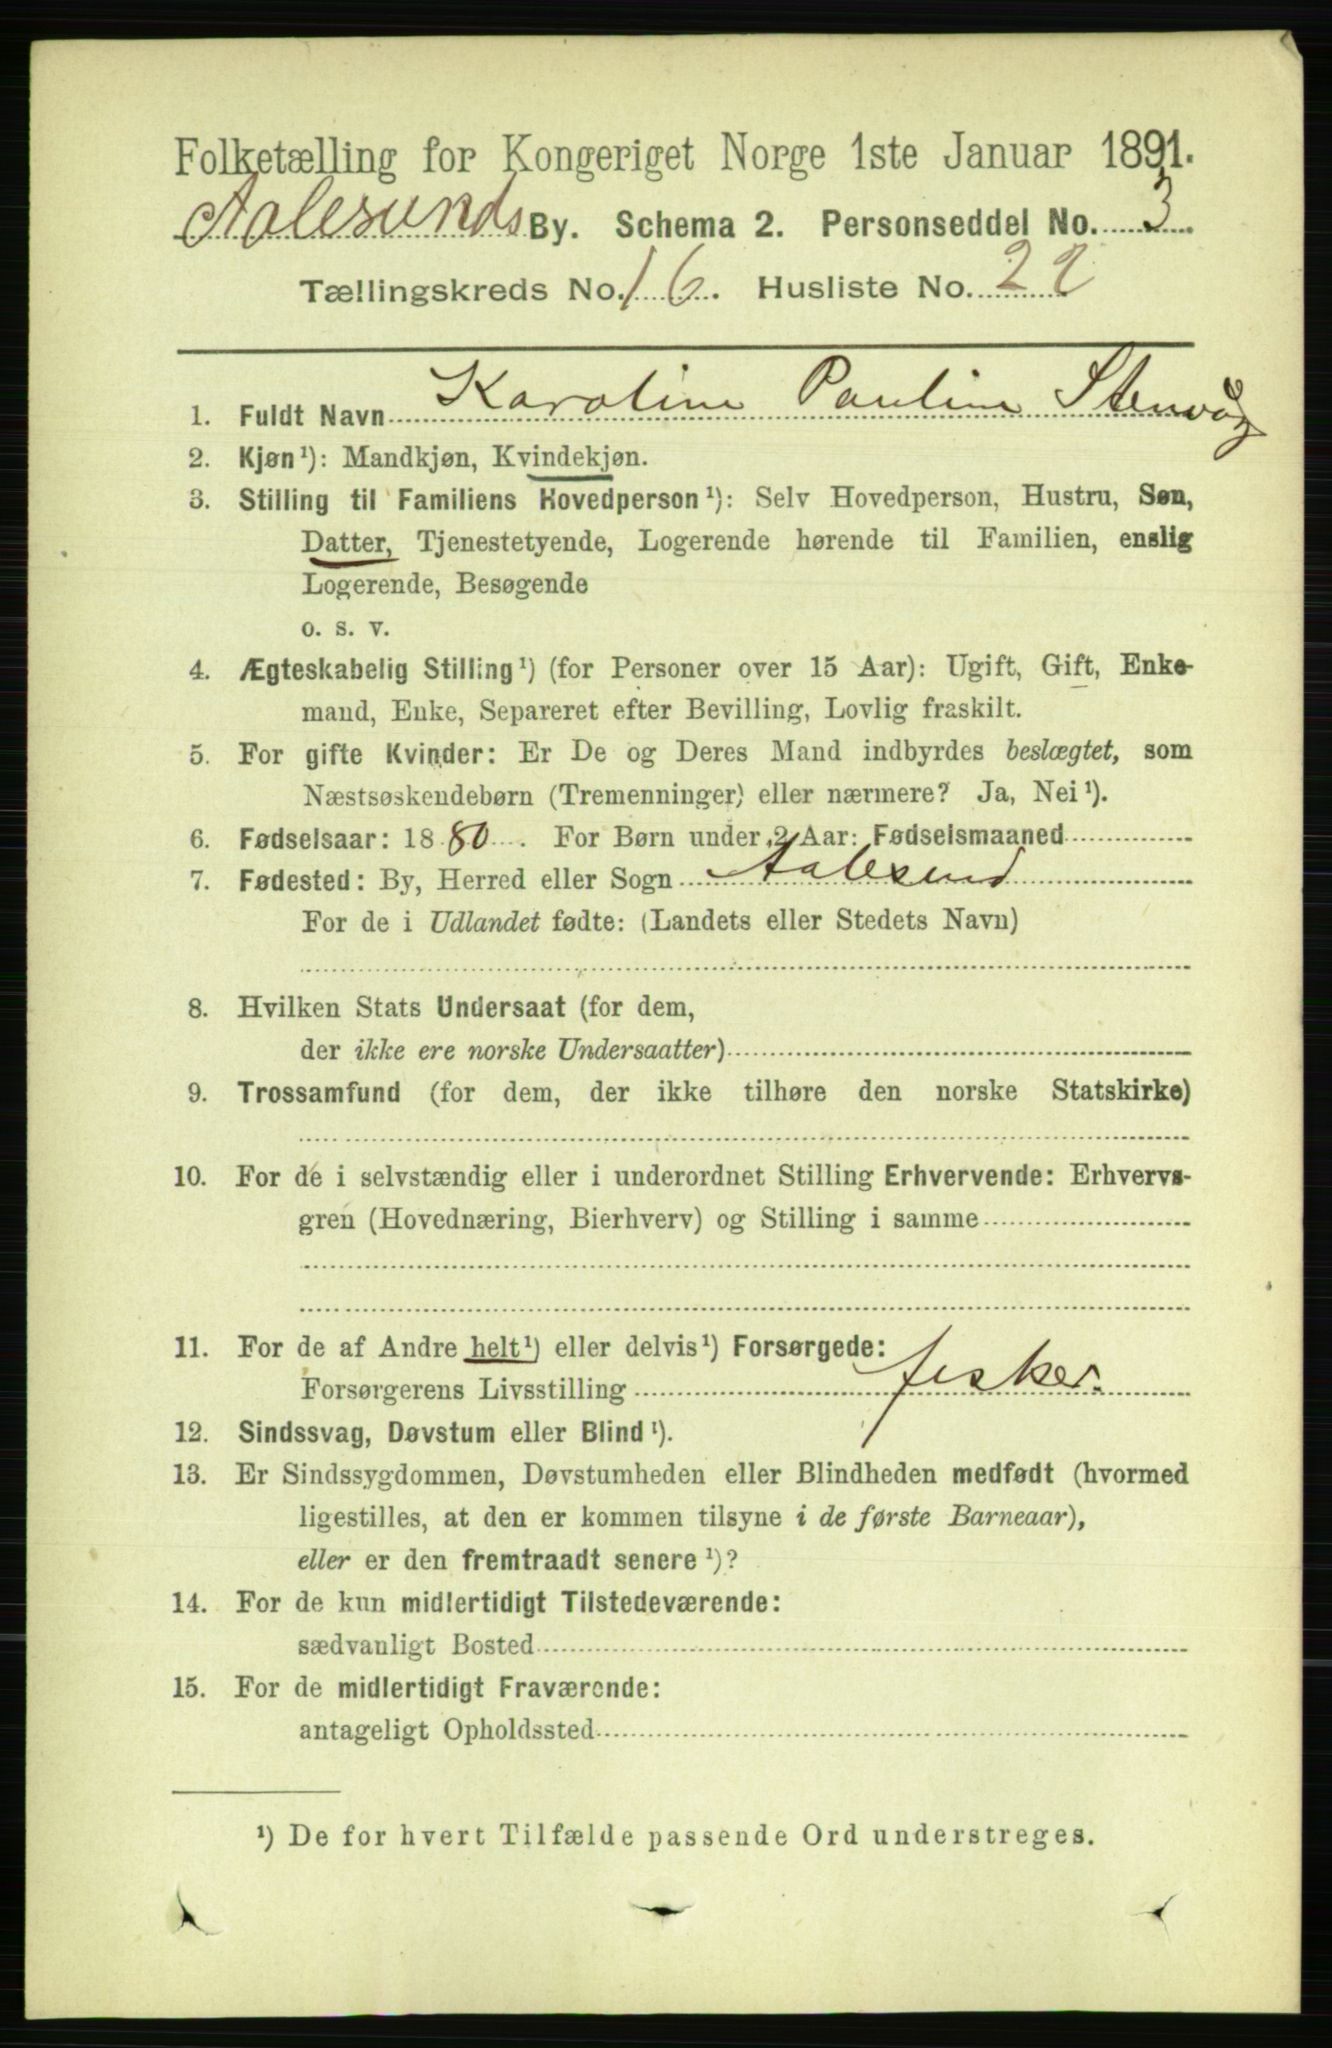 Folketælling for Kongeriget Norge 1ste Januar 1891.
Aalesunds By. Schema 2. Personseddel No. 3
Tællingskreds No. 16. Husliste No. 22
1. Fuldt Navn Karoline Pauline Stenvåg
2. Kjøn¹): Mandkjøn, Kvindekjøn.
3. Stilling til Familiens Hovedperson¹): Selv Hovedperson, Hustru, Søn,
Datter, Tjenestetyende, Logerende hørende til Familien, enslig
Logerende, Besøgende
o. s. v.
4. Ægteskabelig Stilling¹) (for Personer over 15 Aar): Ugift, Gift, Enke-
mand, Enke, Separeret efter Bevilling, Lovlig fraskilt.
5. For gifte Kvinder: Er De og Deres Mand indbyrdes beslægtet, som
Næstsøskendebørn (Tremenninger) eller nærmere? Ja, Nei¹).
6. Fødselsaar: 1880. For Børn under 2 Aar: Fødselsmaaned
7. Fødested: By, Herred eller Sogn Aalesund
For de i Udlandet fødte: (Landets eller Stedets Navn)
8. Hvilken Stats Undersaat (for dem,
der ikke ere norske Undersaatter)
9. Trossamfund (for dem, der ikke tilhøre den norske Statskirke)
10. For de i selvstændig eller i underordnet Stilling Erhvervende: Erhvervs-
gren (Hovednæring, Bierhverv) og Stilling i samme
11. For de af Andre helt¹) eller delvis¹) Forsørgede:
Forsørgerens Livsstilling fisker.
12. Sindssvag, Døvstum eller Blind¹).
13. Er Sindssygdommen, Døvstumheden eller Blindheden medfødt (hvormed
ligestilles, at den er kommen tilsyne i de første Barneaar),
eller er den fremtraadt senere¹)?
14. For de kun midlertidigt Tilstedeværende:
sædvanligt Bosted
15. For de midlertidigt Fraværende:
antageligt Opholdssted
¹) De for hvert Tilfælde passende Ord understreges.